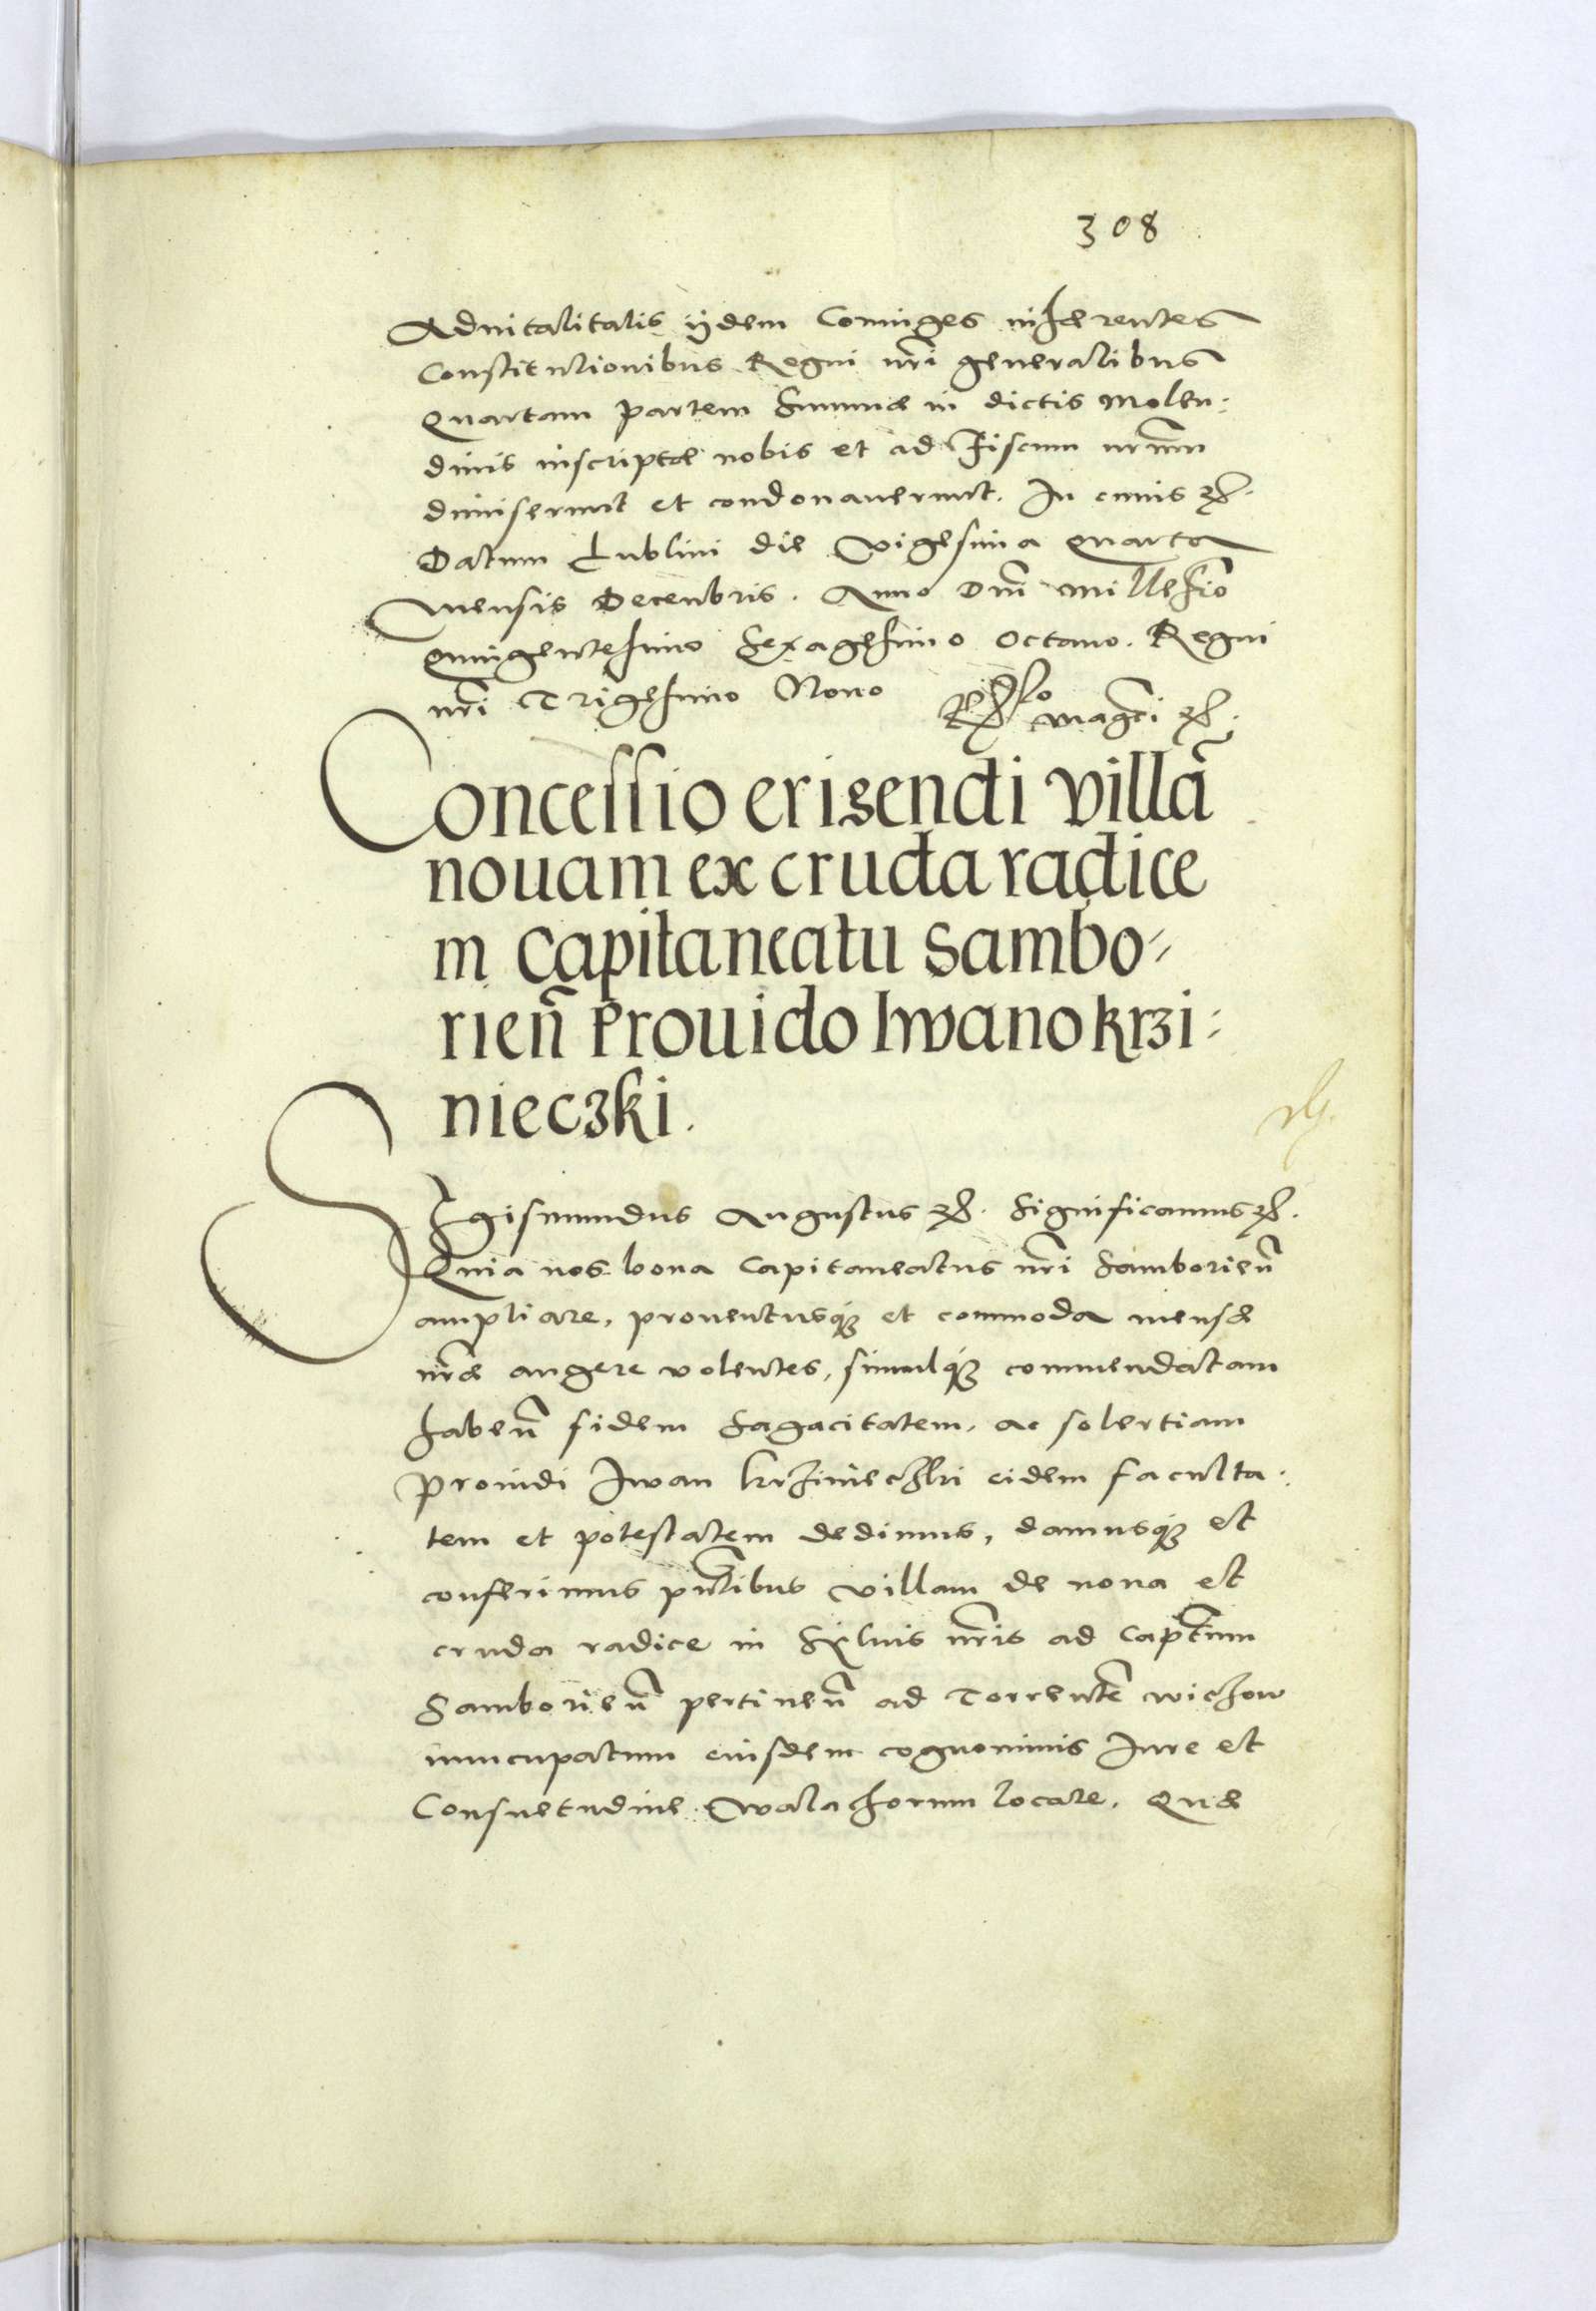 308
Aduitalitatis ijdem Coniuges inhærentes
Constitutionibus Regni nr̃i generalibus
quartam partem Summæ in dictis Molen:
dinis inscriptæ nobis et ad Fiscum nr̃um
dimiserunt et condonauerunt. In cuius ꝛc.
Datum Lublini die Vigesima quarta
mensis Decembris. Anno Dnĩ Millesĩo
quingentesimo Sexagesimo octauo. Regni
nr̃i Trigesimo Nono
magci ꝛc.
Concessio erigendi villã
nouam ex cruda radice
in Capitaneatu Sambo=
rieñ Prouido Iwano krzi:
nieczki.
SIgismundus Augustus ꝛc. Significamus ꝛc.
Quia nos bona Capitaneatus nr̃i Samborieñ
ampliare, prouentusq́ꝫ et commoda mensæ
nr̃æ augere volentes, simulq́ꝫ commendatam
habeñ fidem Sagacitatem, ac solertiam
Prouidi Iwan krziniecżki eidem faculta:
tem et potestatem dedimus, damusq́ꝫ et
conferimus pñtibus villam de noua et
cruda radice in Syluis nr̃is ad Captĩum
Samborieñ pertineñ ad Torrentẽ wichow
nuncupatum eiusdem cognominis Iure et
Consuetudine Walachorum locare. Quæ